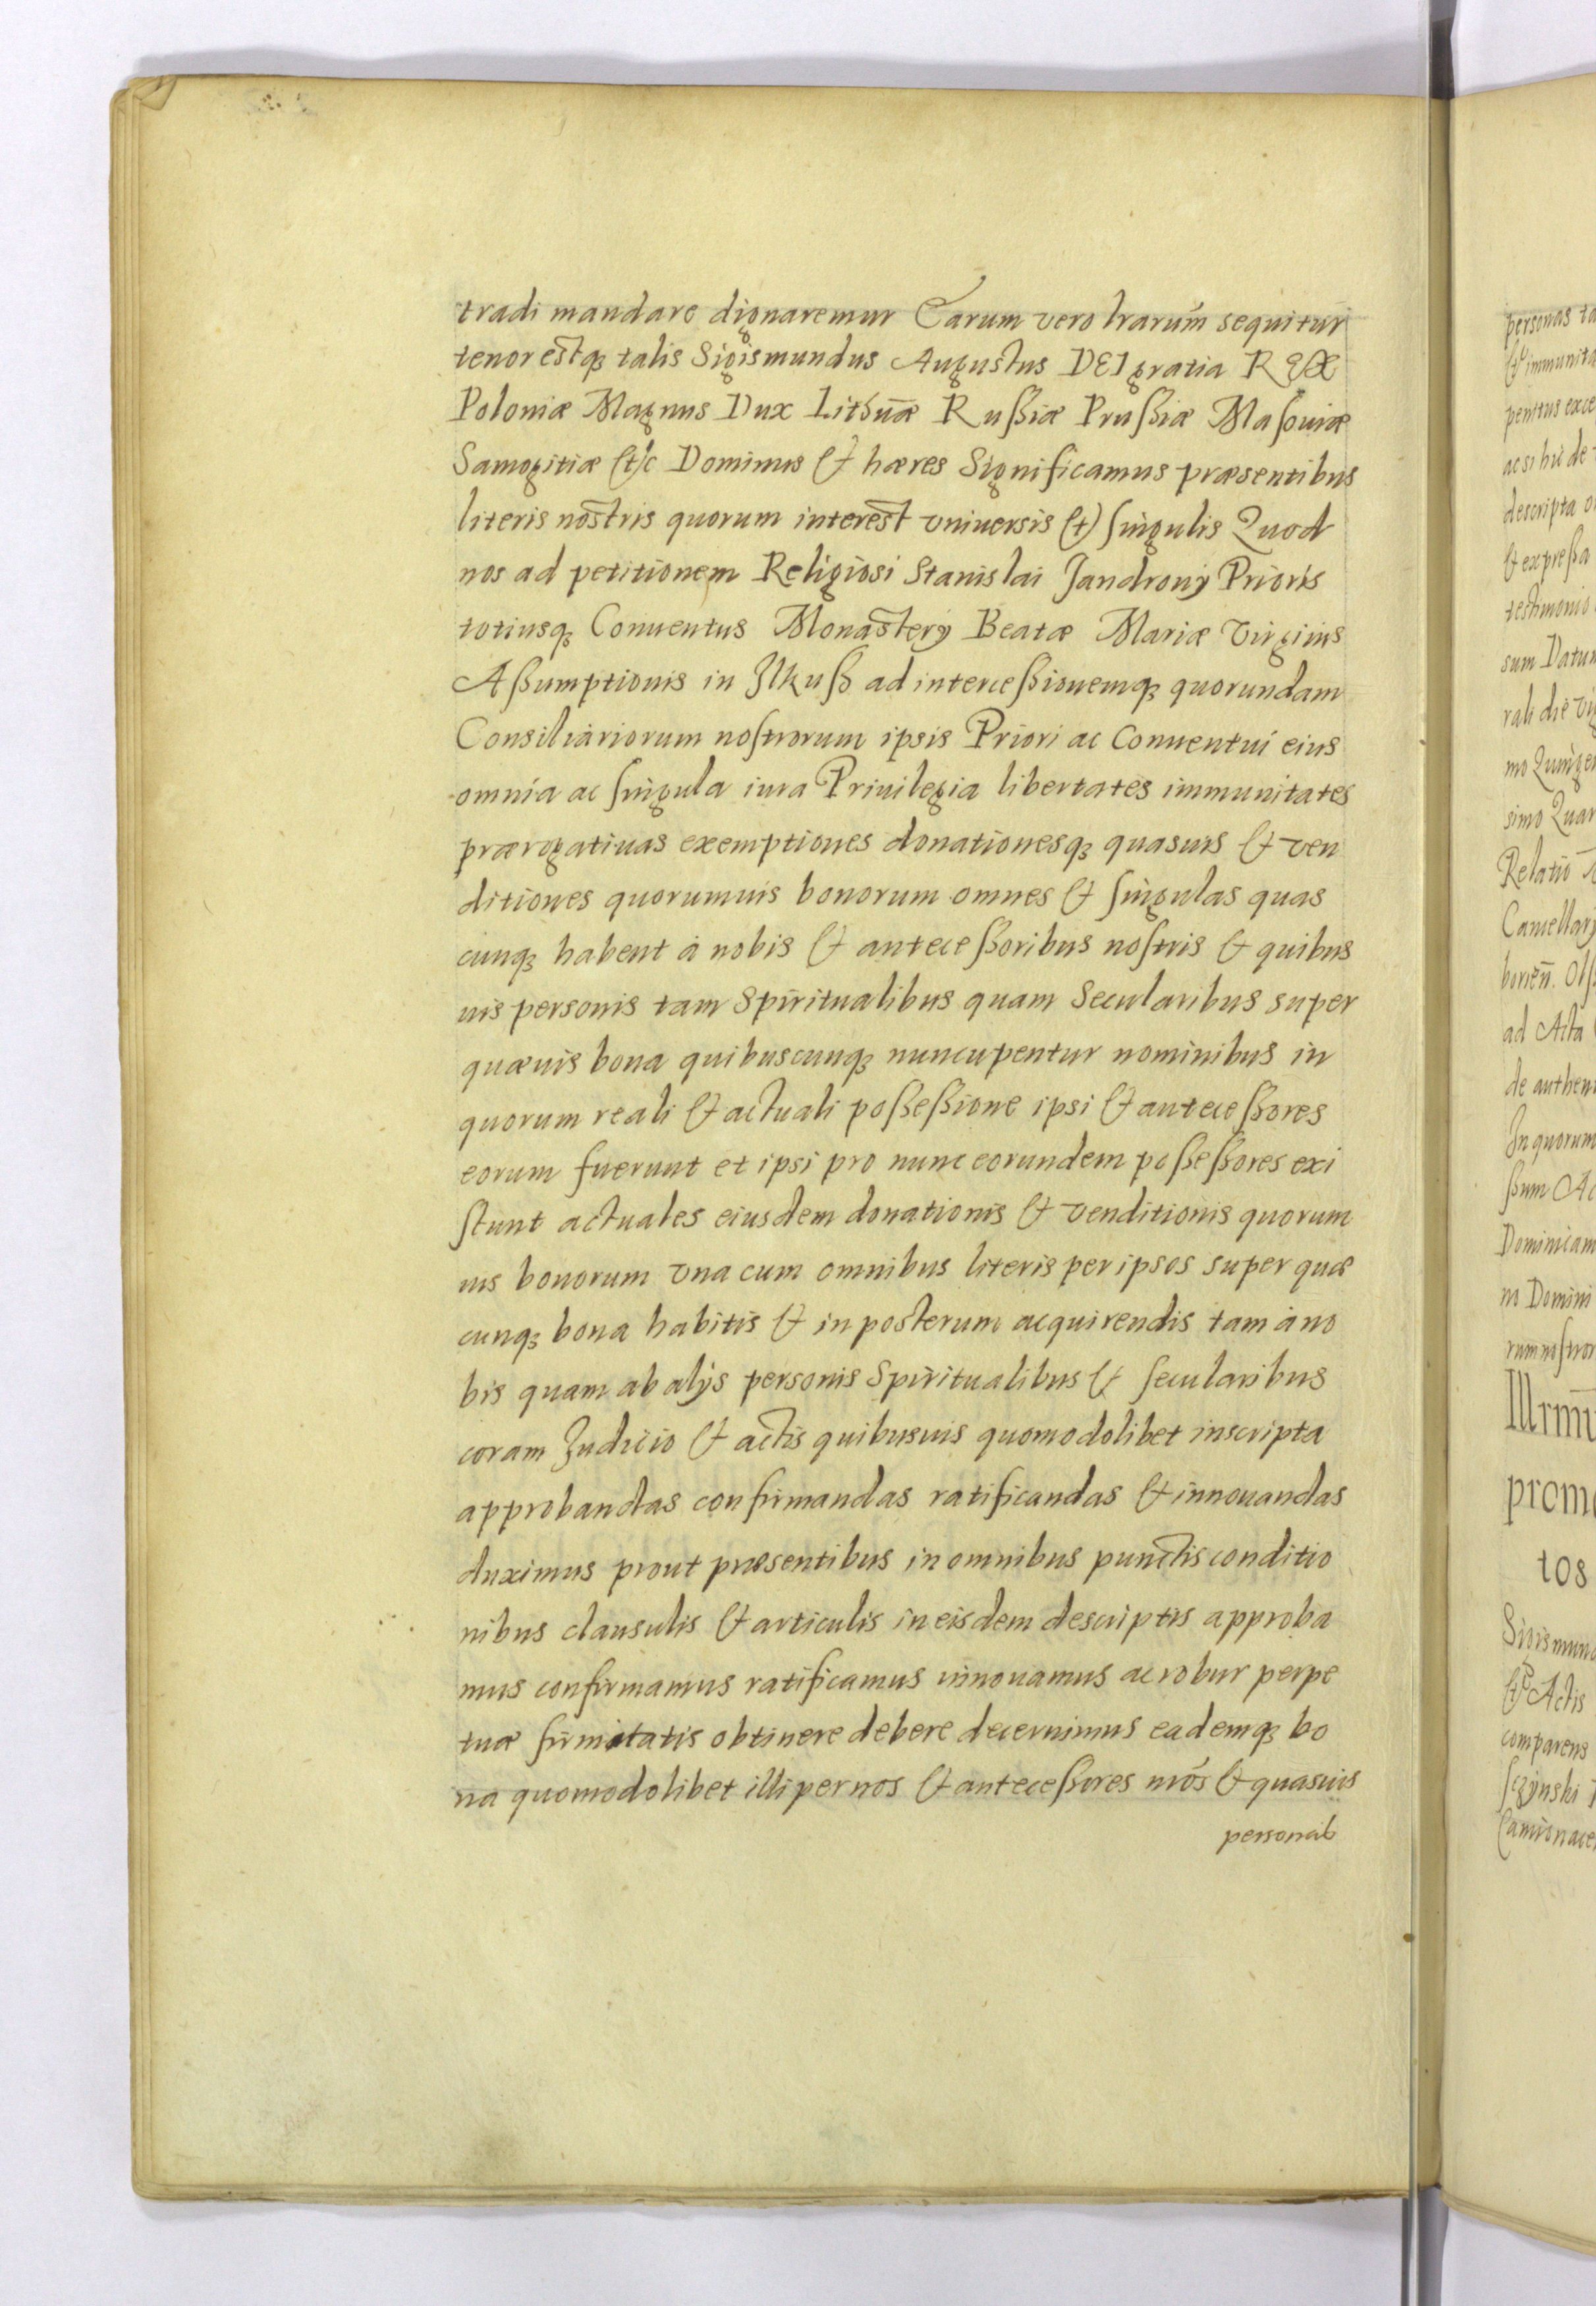 tradi mandare dignaremur Earum vero lrarum sequitur
tenor estq3 talis Sigismundus Augustus DEI gratia REX
Poloniæ Magnus Dux Lithuāæ Rußiæ Prußiæ Masouiæ
Samogitiæ &c Dominus & hæres Significamus præsentibus
literis nostris quorum interest vniuersis & singulis Quod
nos ad petitionem Religiosi Stanislai Jandrouij Prioris
totiusq3 Conuentus Monasterij Beatæ Mariæ Virginis
Aßumptionis in Ilkuß ad interceßionemq3 quorundam
Consiliariorum nostrorum ipsis Priori ac Conuentui eius
omnia ac singula iura Priuilegia libertates immunitates
prærogatiuas exemptiones donationesq3 quasuis & ven
ditiones quorumuis bonorum omnes & singulas quas
cunq3 habent à nobis & anteceßoribus nostris & quibus
uis personis tam Spiritualibus quam Secularibus super
quæuis bona quibuscunq3 nuncupentur nominibus in
quorum reali & actuali poßeßione ipsi & anteceßores
eorum fuerunt et ipsi pro nunc eorundem poßeßores exi
stunt actuales eiusdem donationis & venditionis quorum
uis bonorum vna cum omnibus literis per ipsos super quæ
cunq3 bona habitis & in posterum acquirendis tam à no
bis quam ab alijs personis Spiritualibus & secularibus
coram Iudicio & actis quibusuis quomodolibet inscripta
approbandas confirmandas ratificandas & innouandas
duximus prout præsentibus in omnibus punctis conditio
nibus clausulis & articulis in eisdem descriptis approba
mus confirmamus ratificamus innouamus ac robur perpe
tuæ firmitatis obtinere debere decernimus eademq3 bo
na quomodolibet illi per nos & anteceßores nrōs & quasuis
personas
personas ta
& immunita
penitus exce
ac si hic de
descripta
& expreßa
testimonio
sum Datum
rali die vig
mo Quinge
simo Quar
Relatio
Cancellarij
borien̄.
ad Acta
de authen
In quorum
ßum
Dominicam
no Domini
rum nostror
Illrmi
prom
tos
Sigismund
& Actis
comparens
sczynski
Camionace